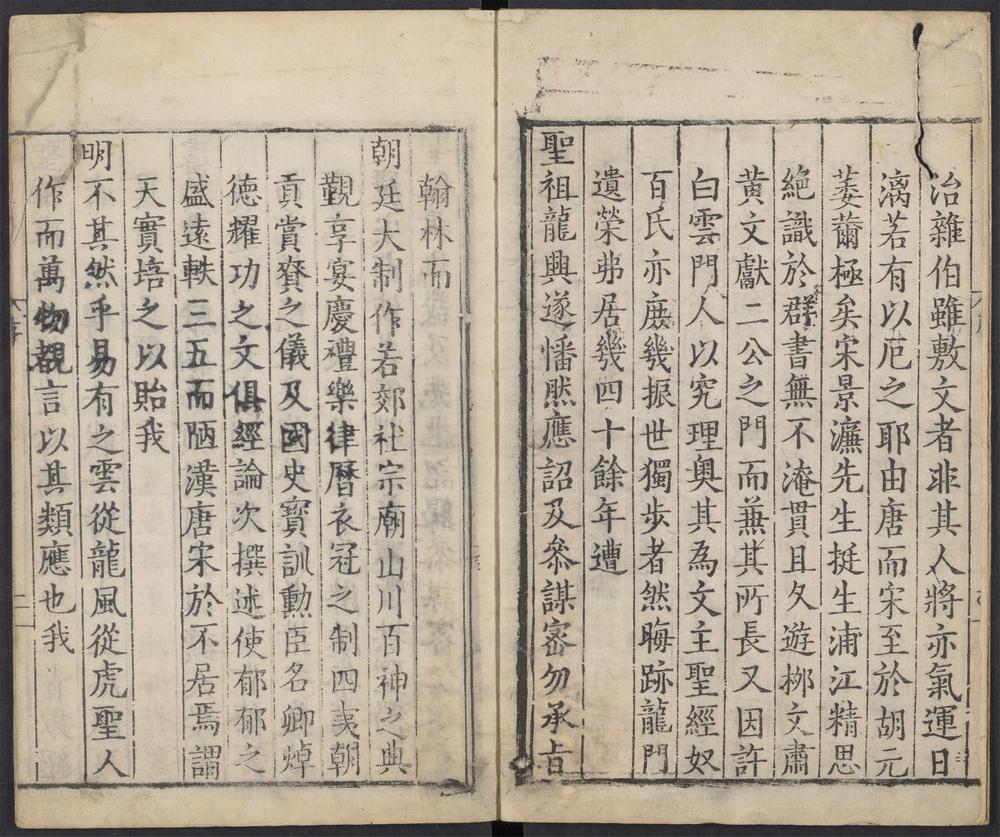 冶雜伯雖敷文者非其人將亦氣運日
漓若有以厄之耶由唐而宋至於胡元
萎薾極矣宋景濂先生挺生浦江精思
絶識於群書無不淹貫且夊遊栁文肅
黄文獻二公之門而兼其所長又因許
白雲門人以究理奥其為文主聖經奴
百氏亦庻幾振世獨步者然晦跡龍門
遺榮弗居幾四十餘年遭
聖祖龍興遂憣然應詔及叅謀宻勿承㫖
翰林而
朝廷大制作若郊社宗廟山川百神之典
觀享宴慶禮樂律曆衣冠之制四夷朝
貢賞賚之儀及國史寳訓勳臣名卿焯
徳耀功之文俱經論次撰述使郁郁之
盛遠軼三五而陋漢唐宋於不居焉謂
天實培之以貽我
明不其然乎易有之雲從龍風從虎聖人
作而萬物覩言以其類應也我